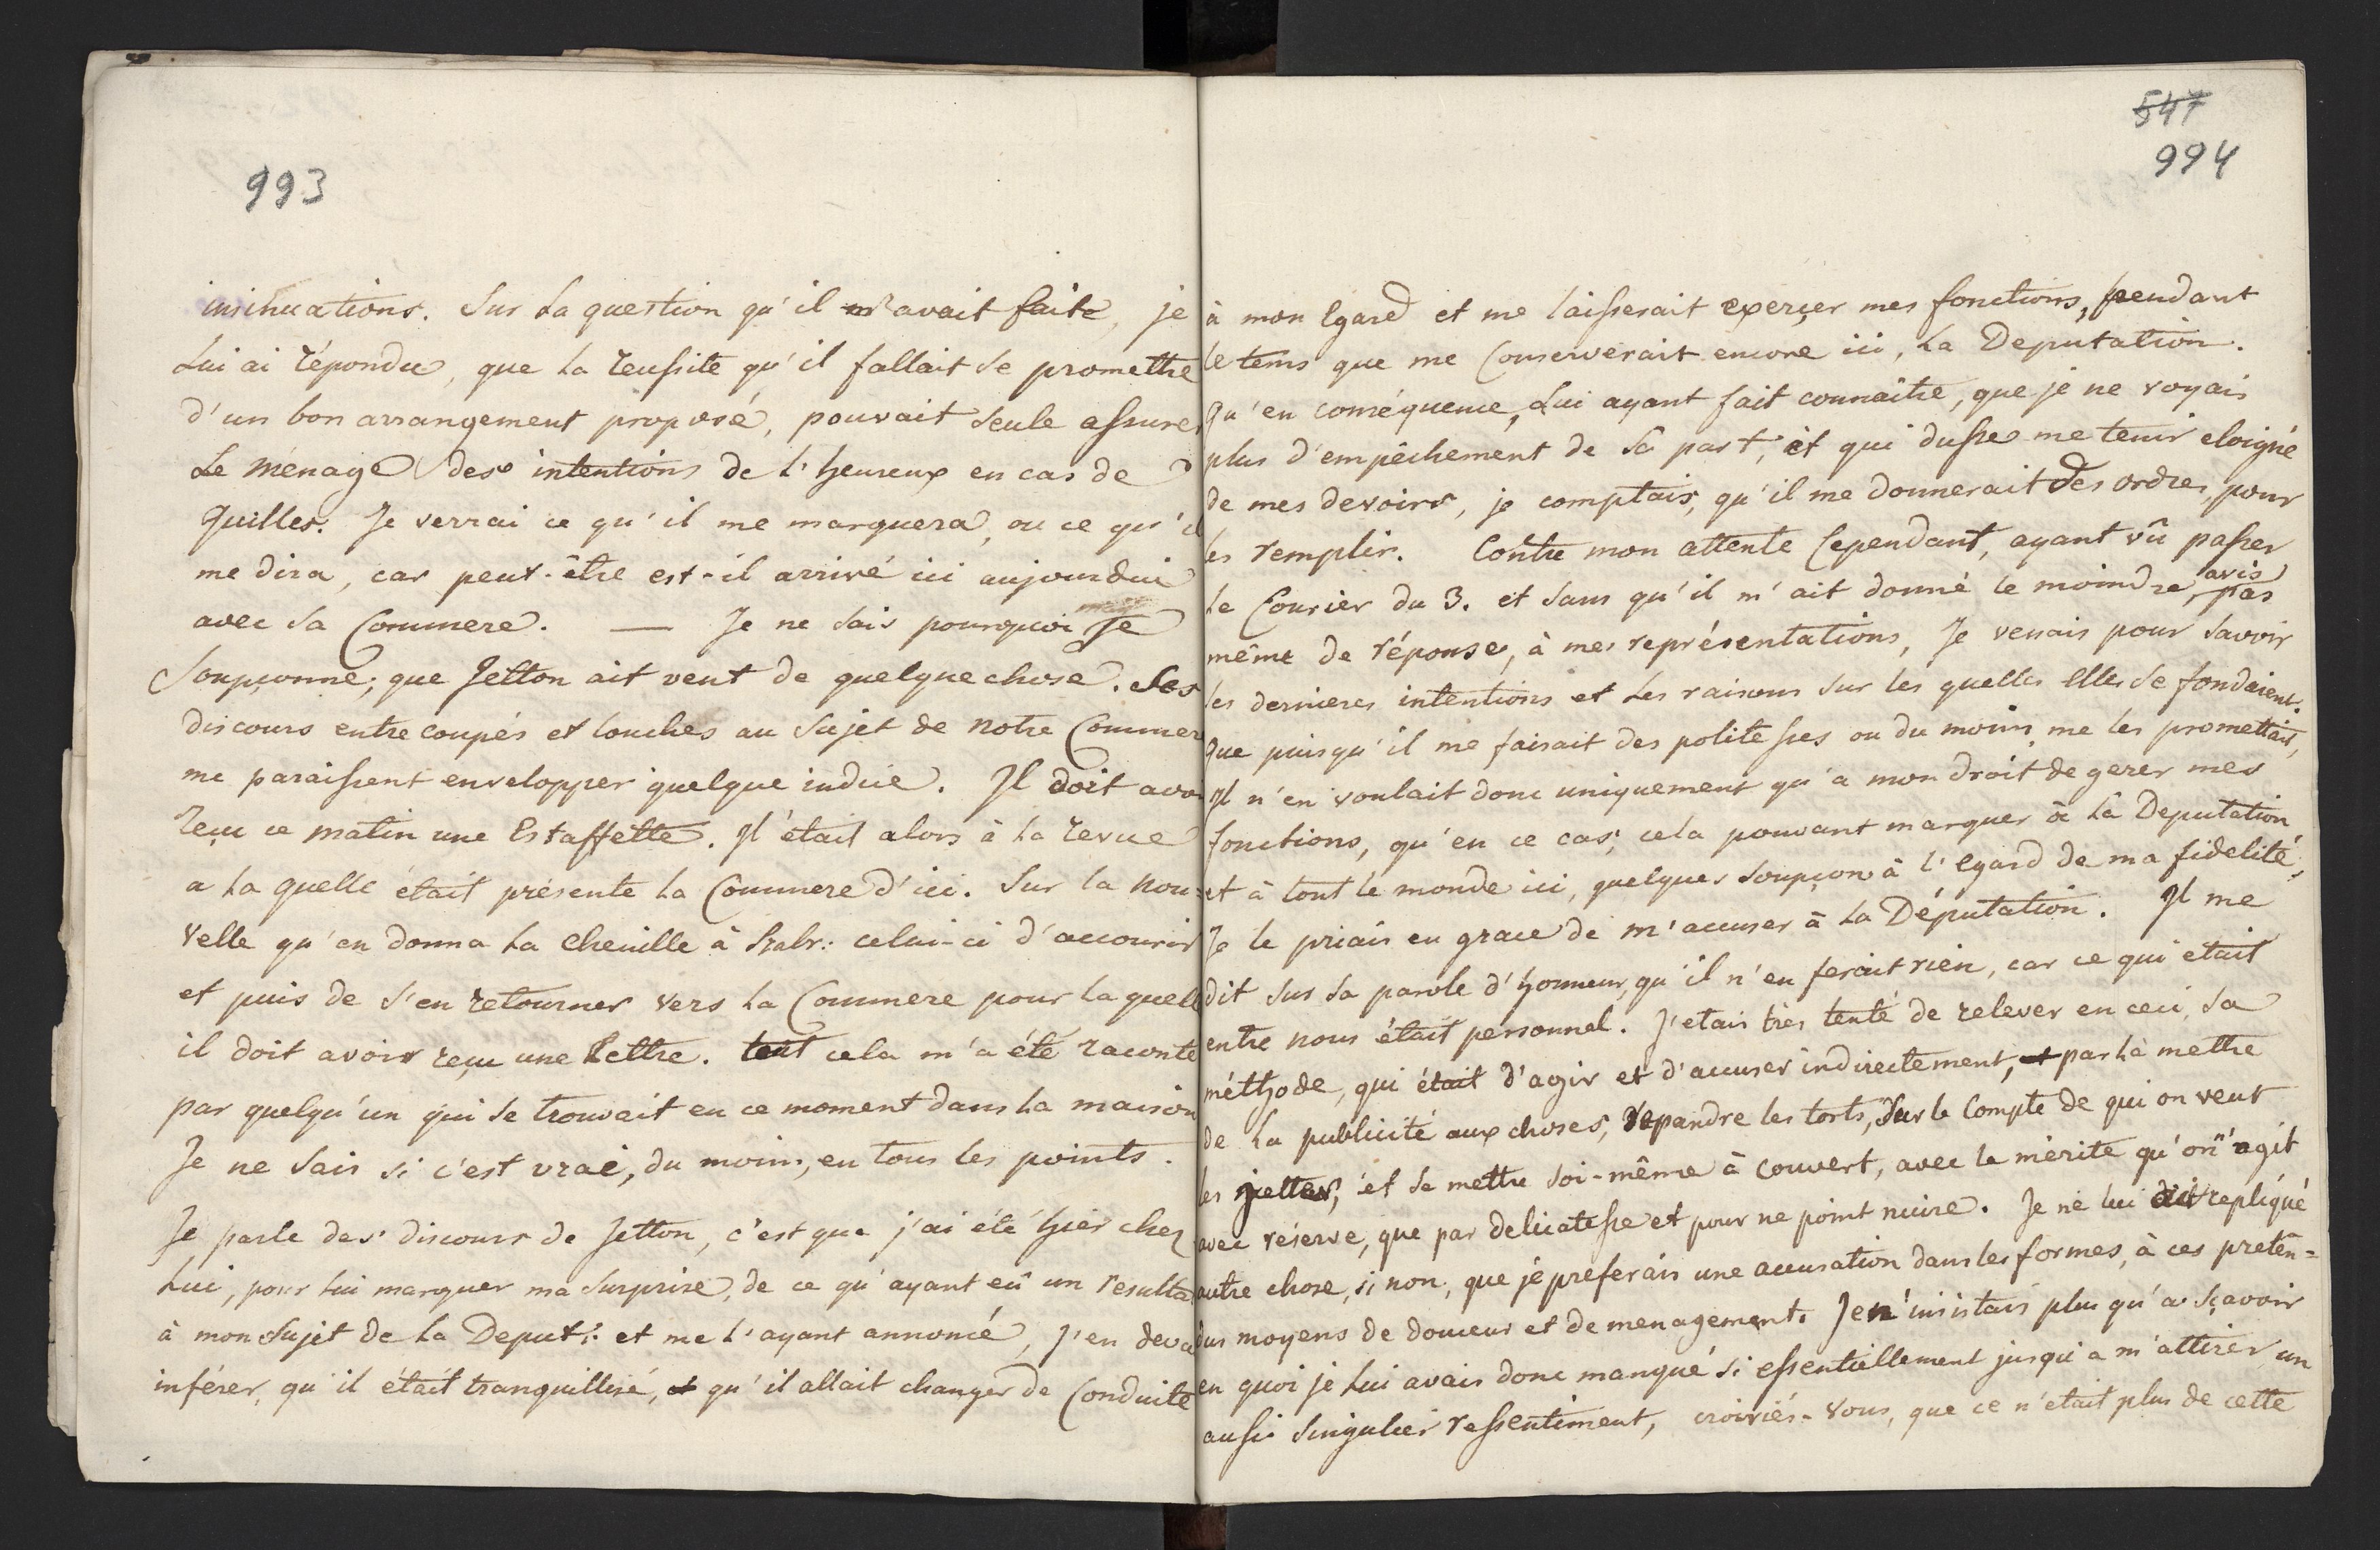 993
insinuations. Sur la question qu'il m'avait faite, je
lui ai répondu, que la reussite qu'il fallait se promettre
d'un bon arrangement proposé, pouvait seule assurer
le ménage des intentions de l'heureux en cas de
Quilles. Je verrai ce qu'il me marquera, ou ce qu'il
me dira, car peut-être est-il arrivé ici aujourdui
avec sa Commere. — Je ne sais pourquoi Je
Soupçonne, que Jetton ait vent de quelque chose. Ses
discours entre coupés et louches au sujet de notre Commer
me paraissent envelopper quelque indice. Il doit avoi
reçu ce matin une Estaffette. Il était alors à la revue
a la quelle était présente la Commere d'ici. Sur la nou=
velle qu'en donna la chenille à Szabr: celui-ci d'accourir
et puis de s'en retourner vers la Commere pour la quell
il doit avoir reçu une Lettre. tout cela m'a été raconté
par quelqu'un qui se trouvait en ce moment dans la maison
Je ne sais si c'est vrai, du moins, en tous les points.
Je parle des discours de Jetton, c'est que j'ai été hier chez
Lui, pour lui marquer ma surprise, de ce qu'ayant eû un resulta
à mon sujet de la Deput: et me l'ayant annoncé, j'en deva
inférer, qu'il était tranquillisé, et qu'il allait changer de Conduite
547
994
à mon Egard et me laisserait exerçer mes fonctions, pendant
le tems que me Conserverait encore ici, la Deputation.
Qu'en conséquence, Lui ayant fait connaître, que je ne voyais
plus d'empêchement de sa part, et qui dusse me tenir eloigné
de mes devoirs, je comptais, qu'il me donnerait des ordres, pour
les remplir. Contre mon attente Cependant, ayant vû passer
le Courier du 3. et sans qu'il m'ait donné le moindre avis pas
même de réponse, à mes représentations, Je venais pour savoir
les dernieres intentions et les raisons sur les quelles Elles se fondaient.
Que puisqu'il me faisait des politesses ou du moins me les promettait,
Il n'en voulait donc uniquement qu'a mon droit de gerer mes
fonctions, qu'en ce cas, cela pouvant marquer à la Deputation
et à tout le monde ici, quelques soupçon à l'egard de ma fidelité,
Je le priais en grace de m'accuser à la Députation. Il me
dit sur sa parole d'honneur, qu'il n'en ferait rien, car ce qui était
entre nous était personnel. J'etais très tenté de relever en ceci, sa
méthode, qui était d'agir et d'accuser indirectement, et par là mettre
de la publicité aux choses, repandre les torts, sur le Compte de qui on veut
les jetter, et se mettre soi-même à couvert, avec le mérite qu'on n'agit
avec réserve, que par delicatesse et pour ne point nuire. Je ne lui ai repliqué
autre chose, si non, que je preferais une accusation dans les formes, à ces preten=
dus moyens de douceur et de menagement. Je n'insistais plus qu'a sçavoir
en quoi je lui avais donc manqué si essentiellement jusqu'a m'attirer un
aussi singulier ressentiment, croiriés-vous, que ce n'était plus de cette